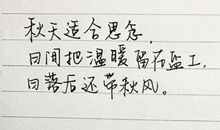 秋天适合思怎,
日间把温暖留在监工,
日落后还带秋风。